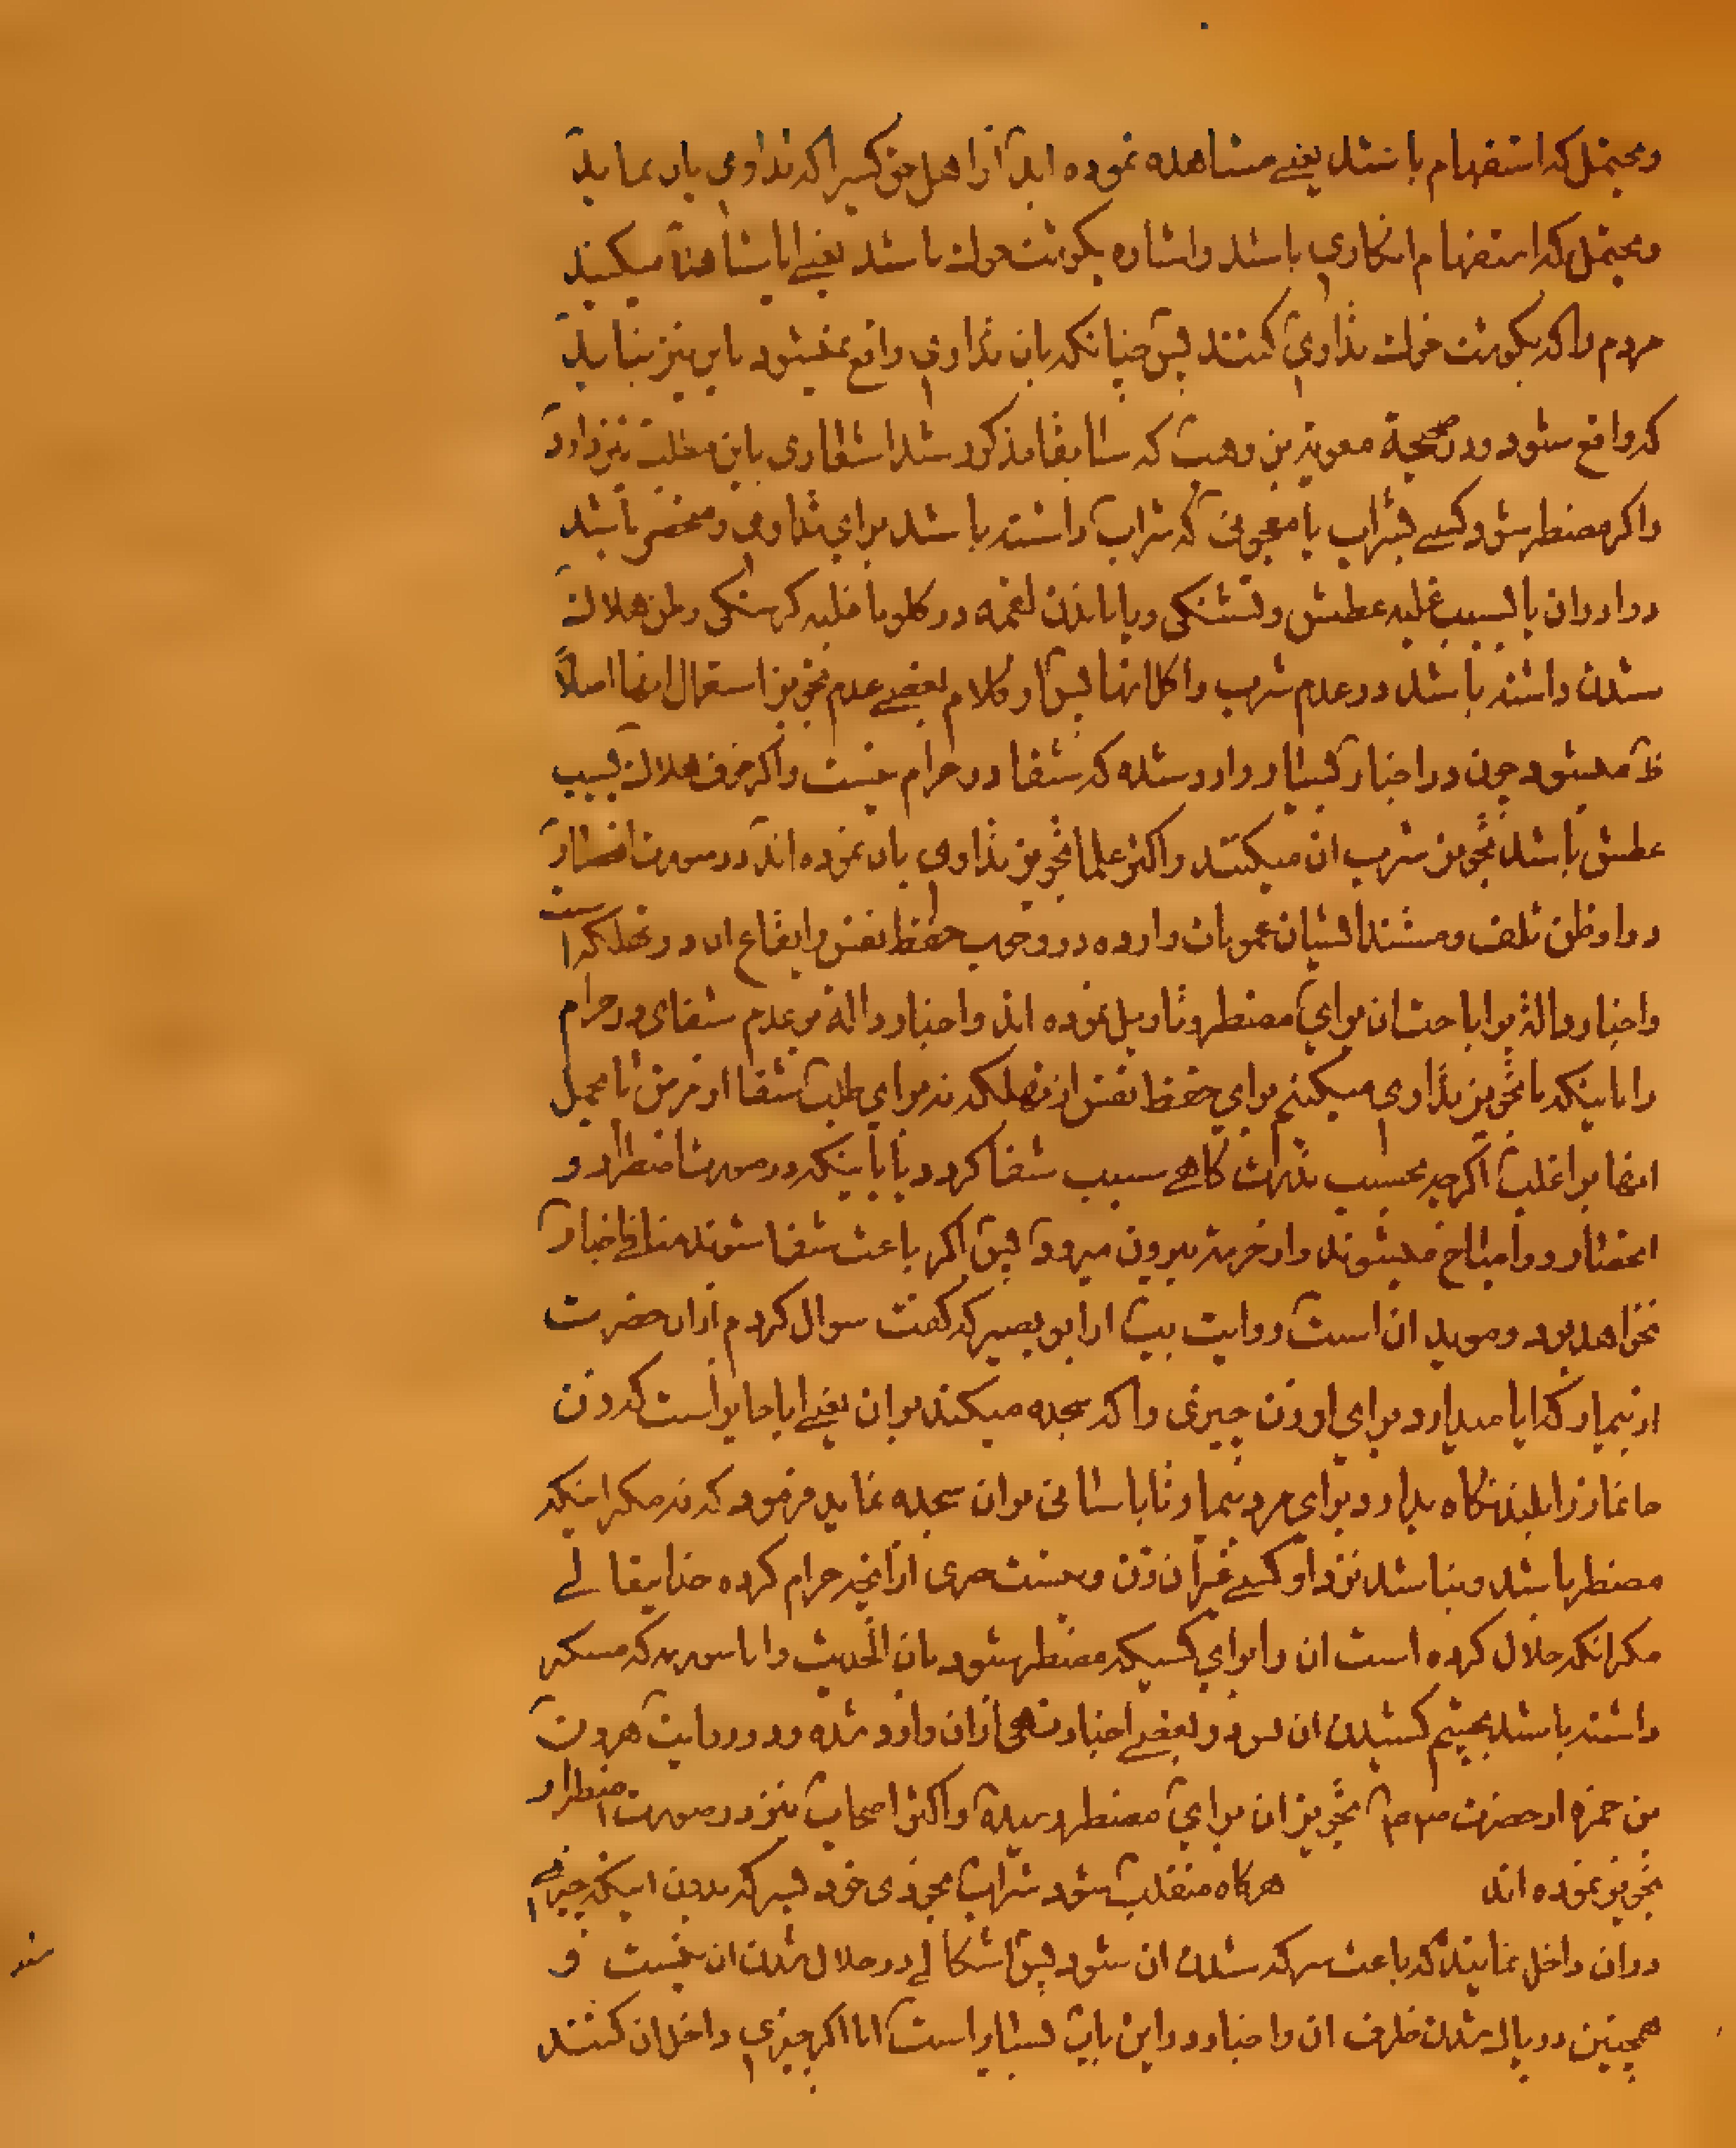 ومحتمل که استفهام باشد یعنے مشاهده نموده اید از اهل حق کسیرا که تداوی بان نماید
ومحتمل که استفهام انکاری باشد واشاره بکوشت خوك باشد یعنے ایا مشاهده میکنید
مردم را که بکوشت خوك تداوی کنند پس چنانکه بان تداوی واقع نمیشود باین نیز نباید
که واقع شود ودر صحیحة معویة بن وهب که سابقا مذکور شد اشعاری باین مطلب نیز دارد
واکر مضطر شود کسے بشراب یا معجونی که شراب داشته باشد برای تداوی ومنحصر باشد
دوا دران یا بسبب غلبه عطش وتشنکی ویا ماندن لقمه در کلو یا غلبه کرسنکی وظن هلاك
شدن داشته باشد در عدم شرب واکل انها پس از کلام بعضے عدم تجویز استعمال انها اصلا
ظ میشود چون در اخبار بسیار وارد شده که شفا در حرام نیست واکر خوف هلاك بسبب
عطش باشد تجویز شرب ان میکنند واکثر علما تجویز تداوی بان نموده اند در صورت انحصار
دوا وظن تلف ومستند ایشان عمومات وارده در وجوب حفظ نفس وایقاع ان در تهلکه است
واخبار داله بر اباحت ان برای مضطر وتاویل نموده اند واخبار داله بر عدم شفای در حرام
را باینکه ما تجویز تداوی میکنیم برای حفظ نفس از تهلکه نه برای طلب شفا از مرض یا محمل
انها بر اغلب اکرچه بحسب ندرت کاهے سبب شفا کردد یا باینکه در صورت اضطرار و
انحصار دوا مباح میشوند واز حرمت بیرون میرود پس اکر باعث شفا شوند منافے اخبار
نخواهد بود وموید ان است روایت یب از ابو بصیر که کفت سوال کردم از ان حضرت
از بیمار که ایا میدارد برای او زن چیزی را که سجده میکند بر ان یعنے ایا جایز است که زن
جا نماز را بلند نکاه بدارد برای مرد بیمار تا باسانی بر ان سجده نماید فرمود که نه مکر اینکه
مضطر باشد ونباشد نزد او کسے غیر ان زن ونیست چیزی از انچه حرام کرده خدایتعالے
مکر انکه حلال کرده است ان را برای کسیکه مضطر شود بان الحدیث واما سرمه که مسکر
داشته باشد بچشم کشیدن ان پس در بعضے اخبار نهی از ان وارد شده ودر روایت هرون
بن حمزه از حضرت ص ۴م تجویز ان برای مضطر رسیده واکثر اصحاب نیز در صورت اضطرار
تجویز نموده اند هرکاه منقلب شود شراب بخودی خود بسرکه بدون اینکه چیزی
دران داخل نمایند که باعث سرکه شدن ان شود پس اشکالے در حلال شدن ان نیست و
همچنین در پاك شدن ظرف ان واخبار در این باب بسیار است اما اکر چیزی داخل ان کنند